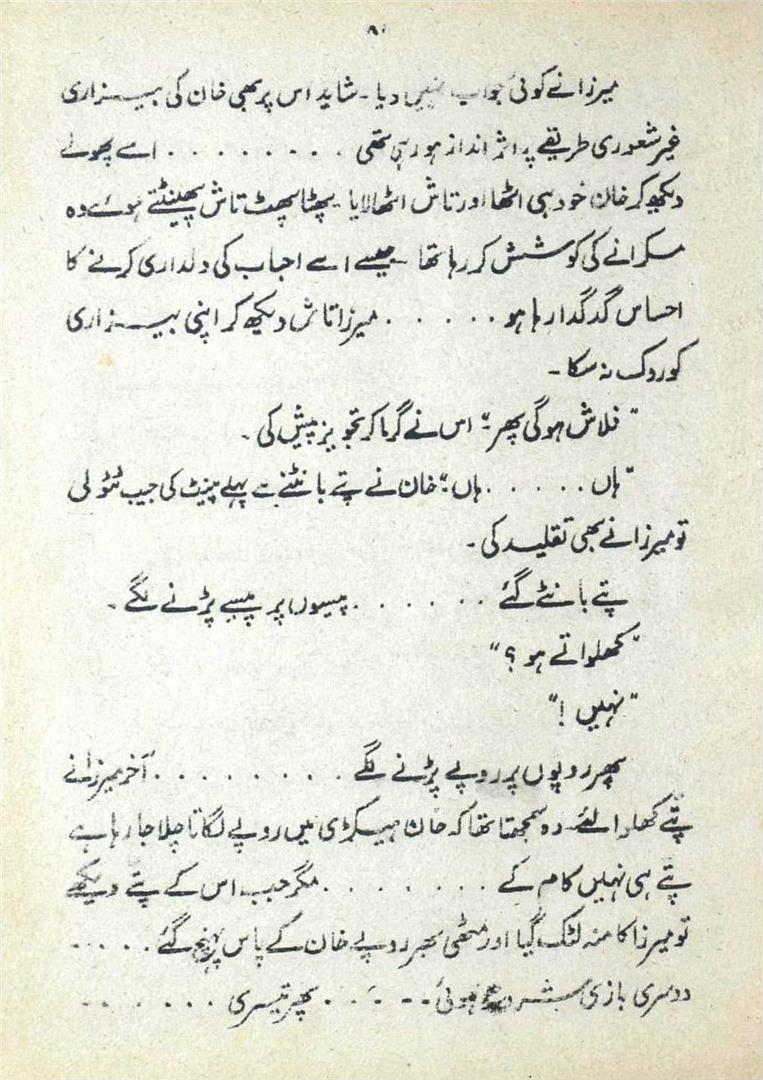 ۸۰
میرزا نے کوئی جواب نہیں دیا۔ شاید اس پر بھی خان کی بیزاری
غیر شعوری طریقے پر اثر انداز ہو رہی تھی ......... اسے پھولے
دیکھ کر خان خود ہی اٹھا اور تاش اٹھا لایا۔ پھٹا پھٹ تاش پھینٹتے ہوئے وہ
مسکرانے کی کوشش کر رہا تھا۔ جیسے اسے احباب کی دلداری کرنے کا
احساس گدگدا رہا ہو ...... میرزا تاش دیکھ کر اپنی بیزاری
کو روک نہ سکا۔
"فلاش ہوگی پھر" اس نے گرما کر تجویز پیش کی۔
"ہاں ...... ہاں" خان نے پتے بانٹنے سے پہلے پینٹ کی جیب ٹٹولی
تو میرزا نے بھی تقلید کی۔
پتے بانٹے گئے ....... پیسوں پر پیسے پڑنے لگے۔
"کھلواتے ہو؟"
"نہیں!"
پھر روپوں پر روپے پڑنے لگے ......... آخر میرزا نے
پتے کھلوا لئے۔ وہ سمجھتا تھا کہ خان ہیکڑی میں روپے لگاتا چلا جا رہا ہے
پتے ہی نہیں کام کے ........ مگر جب اس کے پتے دیکھے
تو میرزا کا منہ لٹک گیا اور مٹھی بھر روپے خان کے پاس پہنچ گئے .....
دوسری بازی شروع ہوئی ...... پھر تیسری .......